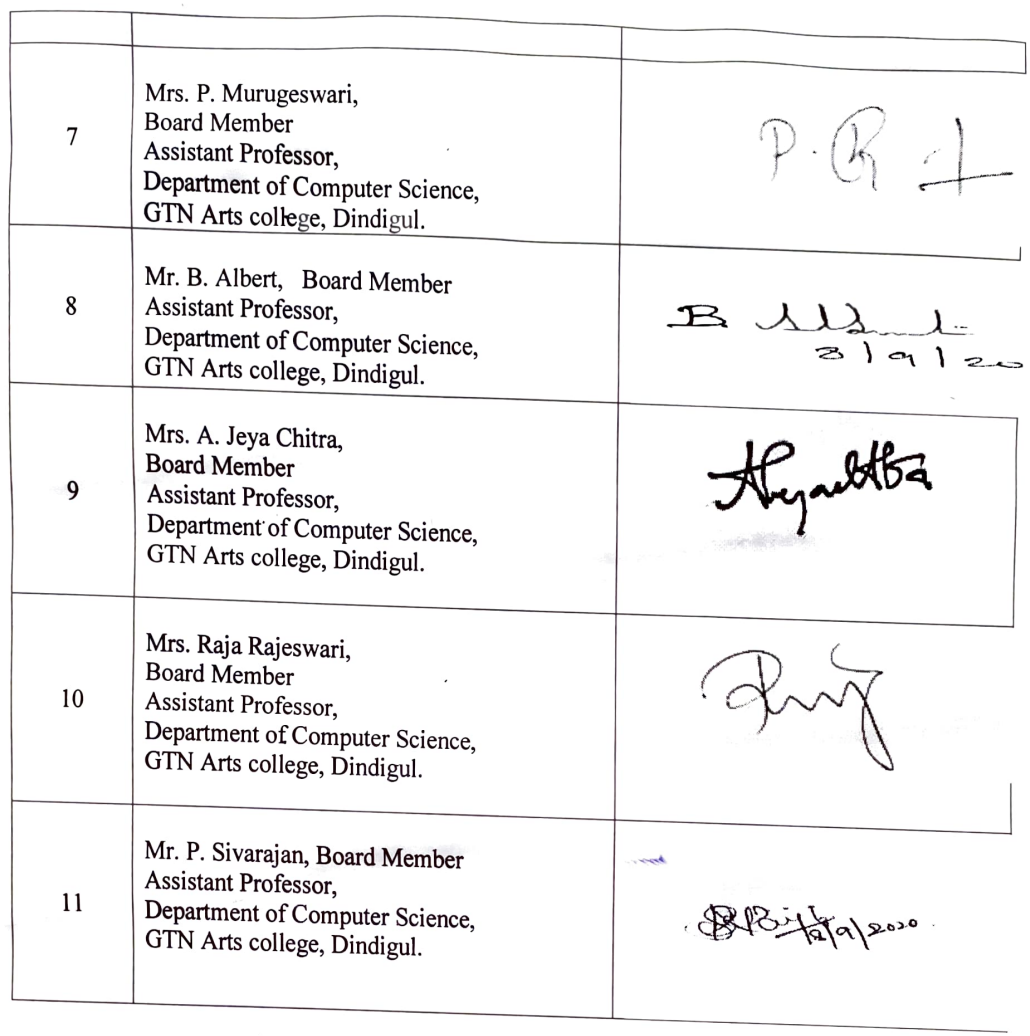 7
Mrs. P. Murugeswari,
Board Member
Assistant Professor,
Department of Computer Science,
GTN Arts college, Dindigul.
8
Mr. B. Albert, Board Member
Assistant Professor,
Department of Computer Science,
GTN Arts college, Dindigul.
3/9/20
9
Mrs. A. Jeya Chitra,
Board Member
Assistant Professor,
Department of Computer Science,
GTN Arts college, Dindigul.
10
Mrs. Raja Rajeswari,
Board Member
Assistant Professor,
Department of Computer Science,
GTN Arts college, Dindigul.
11
Mr. P. Sivarajan, Board Member
Assistant Professor,
Department of Computer Science,
GTN Arts college, Dindigul.